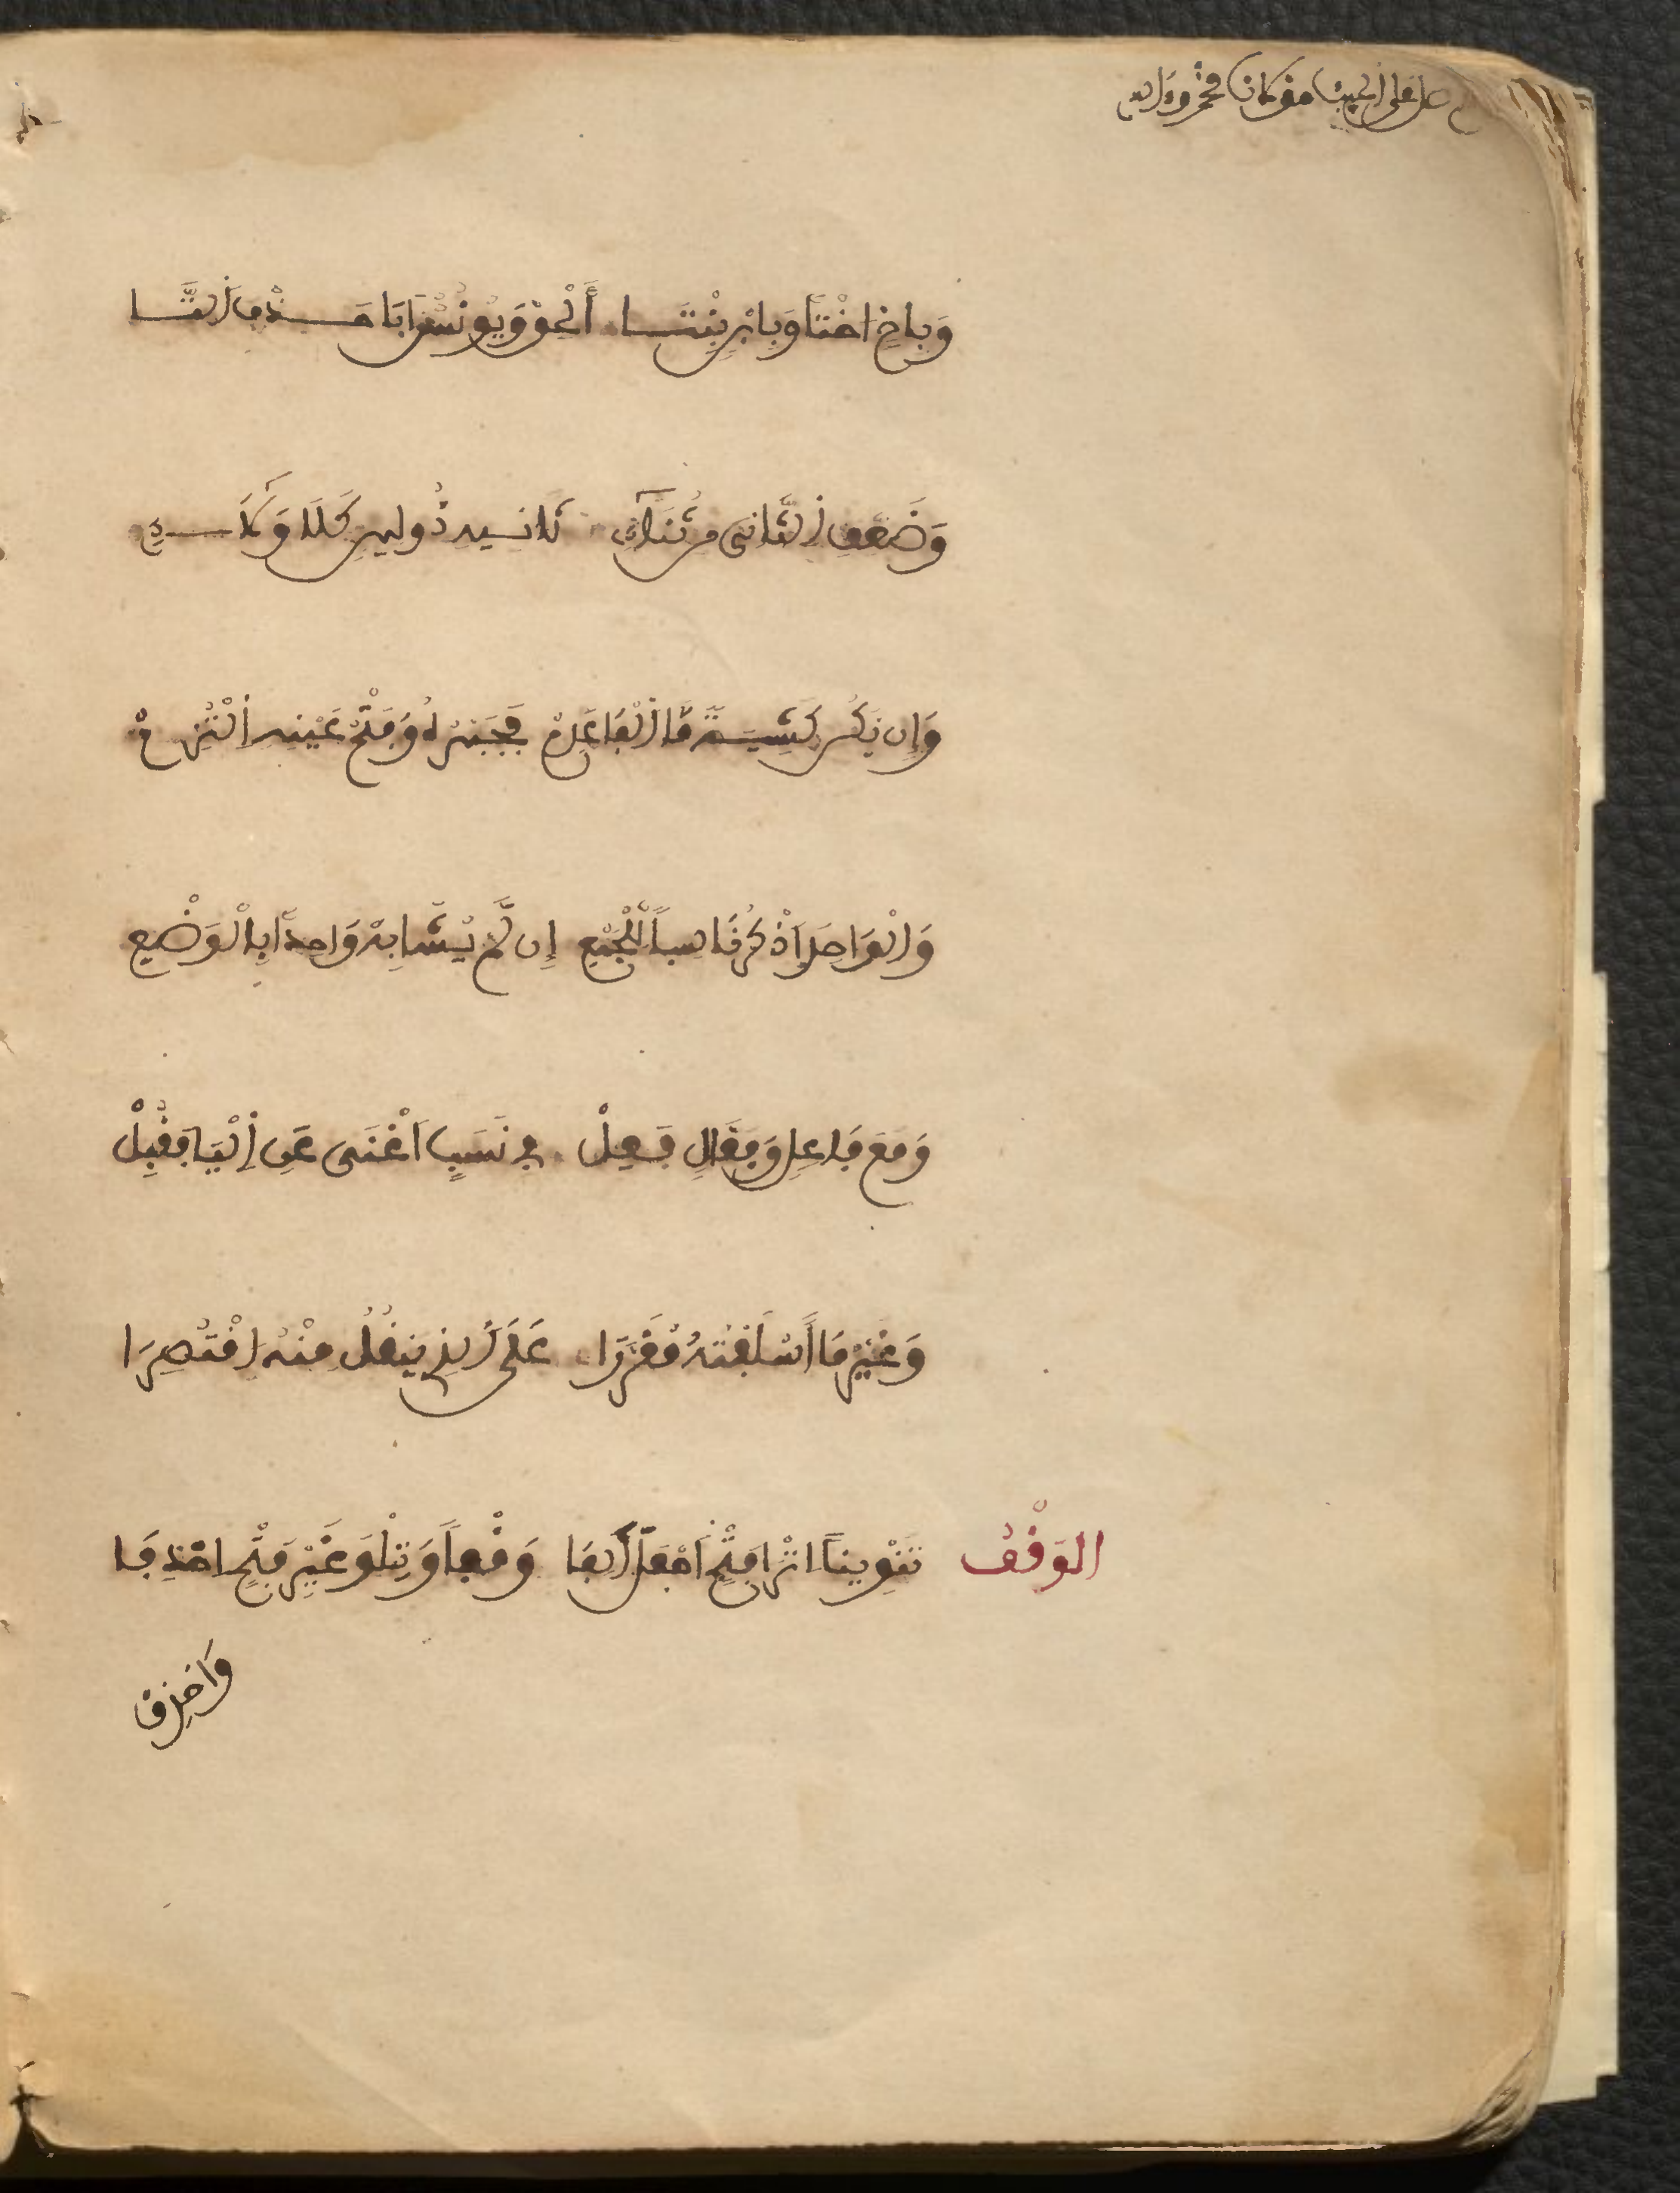 صل على الحبيب
وَبِأَخٍ اخْتاً وَبِابْنٍ بِنْتَا أَلْحِقْ وَيُونُسٌ أَبَى حَذْفَ التَّا
وَضَعِّفِ الثَّانِيَ مِن ثُنَآئِي ثَانِيهِ ذُو لِينٍ كَلَا وَلَآءِي
وَإِن يَكُن كَشِيَةٍ مَّا الْفَا عَدِمْ فَجَبْرُهُ وَفَتْحُ عَيْنِهِ الْتُزِمْ
وَالْوَاحِدَ اذْكُرْ نَاسِباً لِّلْجَمْعِ إِن لَّمْ يُشَابِهْ وَاحِداً بِالْوَضْعِ
وَمَعَ فَاعِلٍ وَفَعَّالٍ فَعِلْ فِي نَسَبٍ اَغْنَى عَنِ الْيَا فَقُبِلْ
وَغَيْرُ مَا أَسْلَفْتُهُ مُقَرَّرَا عَلَى الَّذِي يُنْقَلُ مِنْهُ اقْتُصِرَا
الوَقْفُ تَنْوِيناً اثْرَ فَتْحٍ اجْعَلْ أَلِفَا وَقْفاً وَتِلْوَ غَيْرِ فَتْحٍ احْذِفَا
وَاحْذِفْ